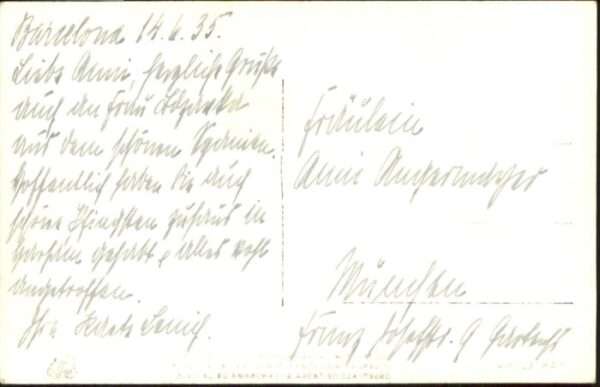 Barcelona 14.6.35.
Liebe Anni, herzliche Grüße
auch an Frau
aus dem schönen Spanien.
Hoffentlich haben Sie auch
schöne Pfingsten zuhaus in
gehabt & alles wohl
angetroffen.
Ihre
Fräulein
Anni Angermayer
München
Franz Josefstr. 9 Gartenh.